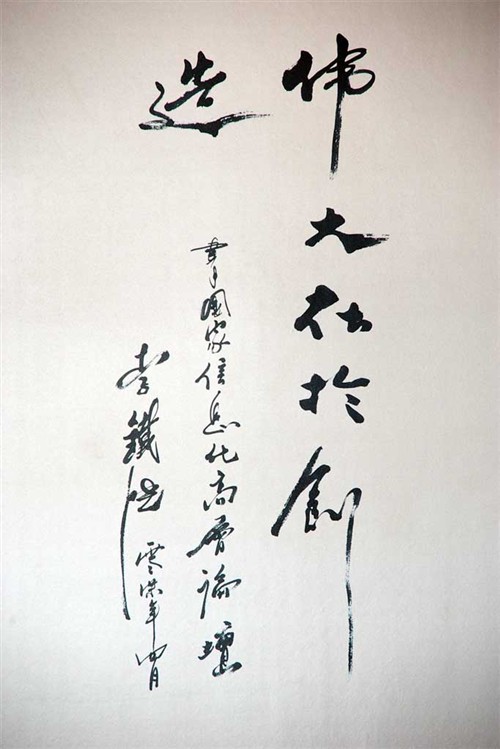 偉大在於創
造
書于國家信息化高層論壇
李鐵
零 年四月